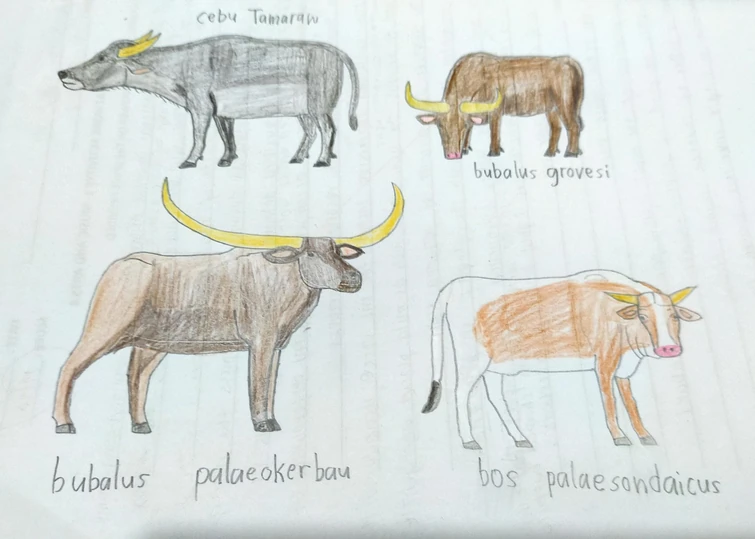 cebu Tamaraw
bubalus grovesi
bubalus palaeokerbau
bos palaesondaicus